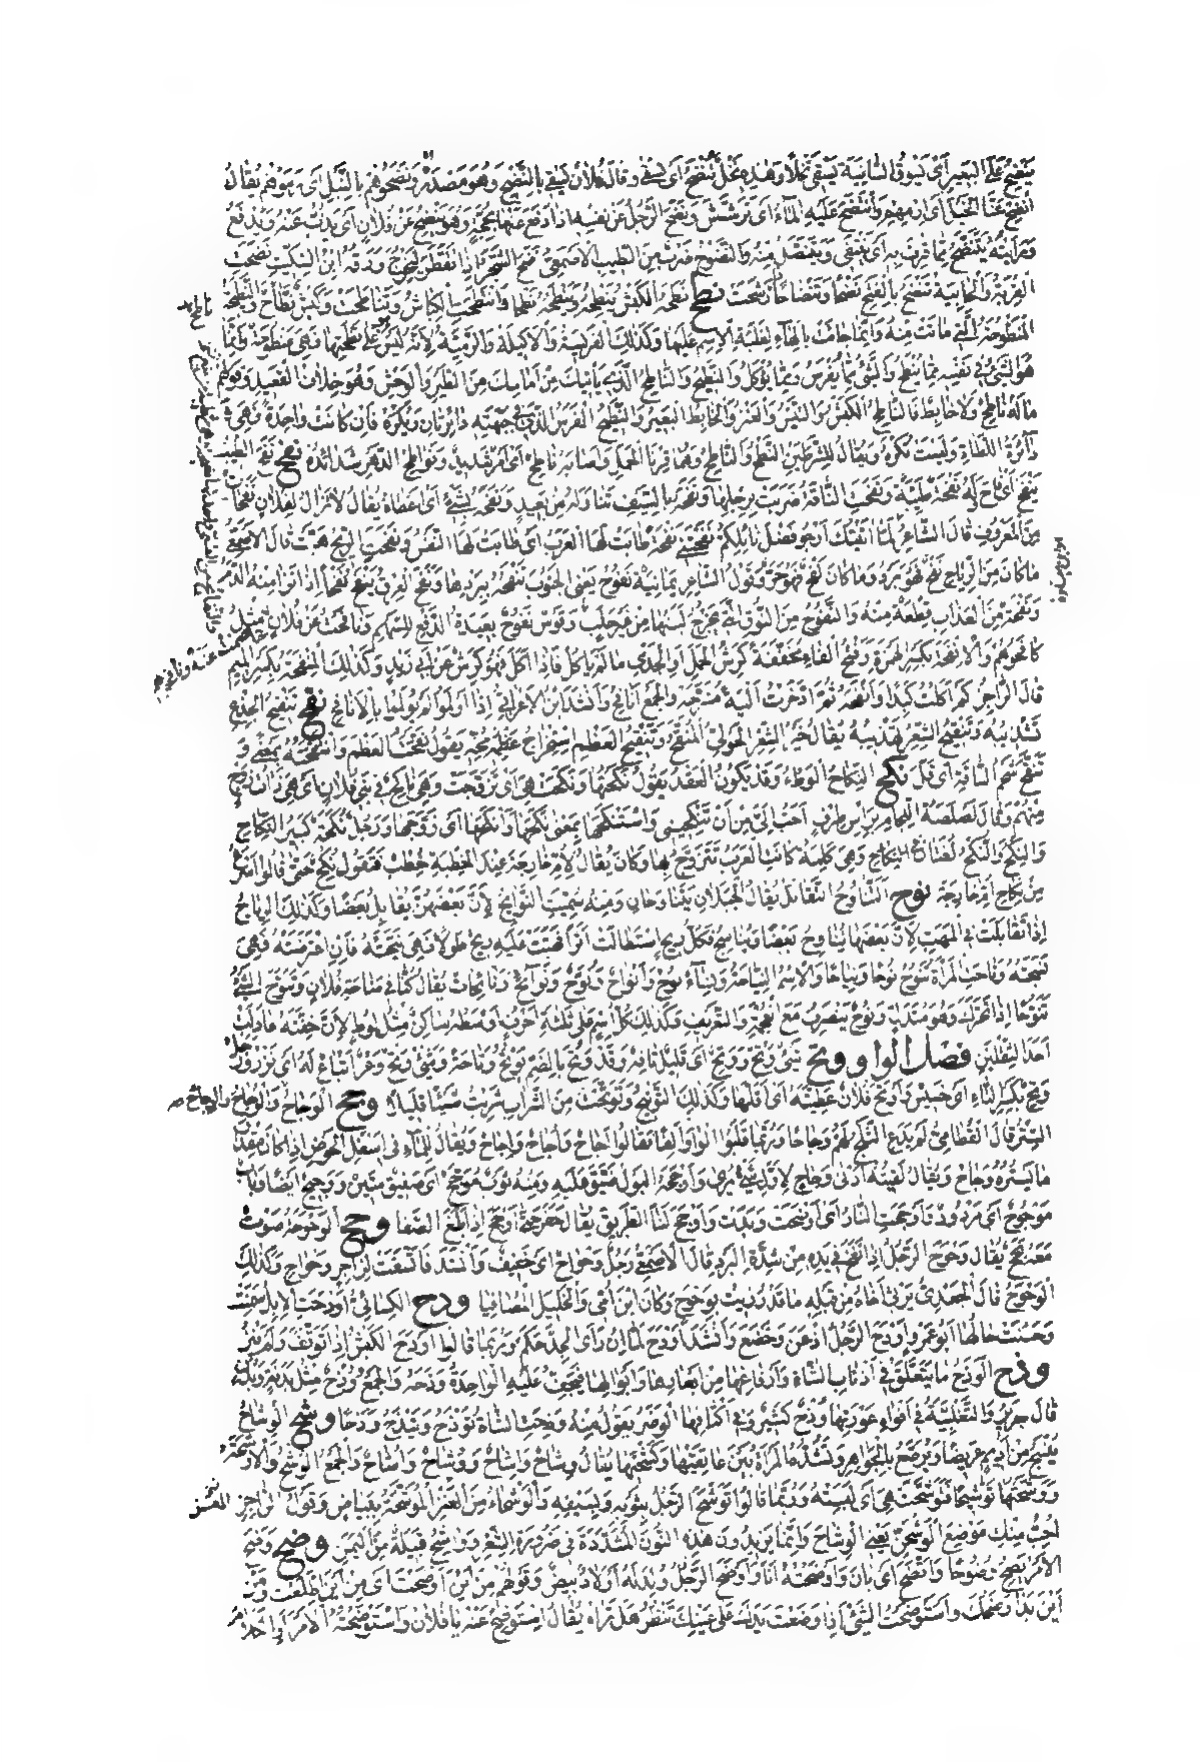 يَنْضِحُ عَلَى البَعِيرِ أَيْ يَسُوقُ السَّانِيَةَ يَسْقِي نَخْلًا وَهٰذِهِ نَخْلٌ تُنْضَحُ أَيْ تُسْقَى وَقَالَ فُلَانٌ يَسْقِي بِالنَّضْحِ وَهُوَ مَصْدَرٌ وَنَضَحُوهُمْ بِالنَّبْلِ أَيْ رَمَوْهُمْ يُقَالُ
انْضَحْ عَنَّا الخَيْلَ أَيْ ارْمِهِمْ وَانْتَضَحَ عَلَيْهِ المَاءُ أَيْ تَرَشَّشَ وَنَضَحَ الرَّجُلُ عَنْ نَفْسِهِ إِذَا دَفَعَ عَنْهَا بِحُجَّةٍ وَهُوَ يَنْضَحُ عَنْ فُلَانٍ أَيْ يَذُبُّ عَنْهُ وَيَدْفَعُ
وَرَأَيْتُهُ يَتَنَضَّحُ مِمَّا قُرِفَ بِهِ أَيْ يَنْتَفِي وَيَتَنَصَّلُ مِنْهُ وَالنَّضُوحُ ضَرْبٌ مِنَ الطِّيبِ الأَصْمَعِيُّ نَضَحَ الشَّجَرُ إِذَا تَفَطَّرَ لِيَخْرُجَ وَرَقُهُ ابْنُ السِّكِّيتِ نَضَحَتِ
القِرْبَةُ وَالخَابِيَةُ تَنْضَحُ بِالفَتْحِ نَضْحًا وَتَنْضَاحًا رَشَحَتْ نطح نَطَحَهُ الكَبْشُ يَنْطِحُهُ وَيَنْطَحُهُ نَطْحًا وَانْتَطَحَتِ الكِبَاشُ وَتَنَاطَحَتْ وَكَبْشٌ نَطَّاحٌ وَالنَّطِيحَةُ
المَنْطُوحَةُ الَّتِي مَاتَتْ مِنْهُ وَإِنَّمَا جَاءَتْ بِالهَاءِ لِغَلَبَةِ الاِسْمِ عَلَيْهَا وَكَذَلِكَ الفَرِيسَةُ وَالأَكِيلَةُ وَالرَّمِيَّةُ لِأَنَّهُ لَيْسَ هُوَ عَلَى نَطَحْتُهَا فَهِيَ مَنْطُوحَةٌ وَإِنَّمَا
هُوَ الشَّيْءُ فِي نَفْسِهِ مِمَّا يُنْطَحُ وَالشَّيْءُ مِمَّا يُفْرَسُ وَمِمَّا يُؤْكَلُ وَالنَّطِيحُ وَالنَّاطِحُ الَّذِي يَأْتِيكَ مِنْ أَمَامِكَ مِنَ الطَّيْرِ وَالوَحْشِ وَهُوَ خِلَافُ القَعِيدِ وَقَوْلُهُمْ
مَا لَهُ نَاطِحٌ وَلَا خَابِطٌ فَالنَّاطِحُ الكَبْشُ وَالتَّيْسُ وَالعَنْزُ وَالخَابِطُ البَعِيرُ وَالنَّطِيحُ الفَرَسُ الَّذِي فِي جَبْهَتِهِ دَائِرَتَانِ وَيُكْرَهُ فَإِنْ كَانَتْ وَاحِدَةً وَهِيَ
دَائِرَةُ اللَّطَاةِ وَلَيْسَتْ تُكْرَهُ وَيُقَالُ لِلشَّرَطَيْنِ النَّطْحُ وَالنَّاطِحُ وَهُمَا قَرْنَا الحَمَلِ وَأَصَابَهُ نَاطِحٌ أَيْ أَمْرٌ شَدِيدٌ وَنَوَاطِحُ الدَّهْرِ شَدَائِدُهُ نفح نَفَحَ الطِّيبُ
يَنْفَحُ أَيْ فَاحَ لَهُ نَفْحَةٌ طَيِّبَةٌ وَنَفَحَتِ النَّاقَةُ ضَرَبَتْ بِرِجْلِهَا وَنَفَحَهُ بِالسَّيْفِ تَنَاوَلَهُ مِنْ بَعِيدٍ وَنَفَحَهُ بِشَيْءٍ أَيْ أَعْطَاهُ يُقَالُ لَا تَزَالُ لِفُلَانٍ نَفَحَاتٌ
مِنَ المَعْرُوفِ قَالَ الشَّاعِرُ لَمَّا أَتَيْتُكَ أَرْجُو فَضْلَ نَائِلِكُمْ نَفَحْتَنِي نَفْحَةً طَابَتْ لَهَا العَرَبُ أَيْ طَابَتْ لَهَا النَّفْسُ وَنَفَحَتِ الرِّيحُ هَبَّتْ قَالَ الأَصْمَعِيُّ
مَا كَانَ مِنَ الرِّيَاحِ نَفْحٌ فَهُوَ بَرْدٌ وَمَا كَانَ لَفْحٌ فَهُوَ حَرٌّ وَقَوْلُ الشَّاعِرِ يَمَانِيَةٌ نَفُوحُ يَعْنِي الجَنُوبَ تَنْفَحُهُ بِبَرْدِهَا وَنَفَحَ العِرْقُ يَنْفَحُ نَفْحًا إِذَا نَزَا مِنْهُ الدَّمُ
وَنَفْحَةٌ مِنَ العَذَابِ قِطْعَةٌ مِنْهُ وَالنَّفُوحُ مِنَ النُّوقِ الَّتِي يَخْرُجُ لَبَنُهَا مِنْ غَيْرِ حَلَبٍ وَقَوْسٌ نَفُوحٌ بَعِيدَةُ الدَّفْعِ لِلسَّهْمِ وَنَافَحْتُ عَنْ فُلَانٍ مِثْلُ
كَافَحُوهُمْ وَالإِنْفَحَةُ بِكَسْرِ الهَمْزَةِ وَفَتْحِ الفَاءِ مُخَفَّفَةً كَرِشُ الحَمَلِ أَوِ الجَدْيِ مَا لَمْ يَأْكُلْ فَإِذَا أَكَلَ فَهُوَ كَرِشٌ عَنْ أَبِي زَيْدٍ وَكَذَلِكَ المِنْفَحَةُ بِكَسْرِ المِيمِ
قَالَ الرَّاجِزُ كَمْ أَكَلْتُ كَبِدًا وَإِنْفَحَهْ ثُمَّ ادَّخَرْتُ أَلْيَةً مُشَرَّحَهْ وَالجَمْعُ أَنَافِحُ وَأَنْشَدَ ابْنُ الأَعْرَابِيِّ إِذَا أَوْلَمُوا لَمْ يُولِمُوا بِالأَنَافِحِ نقح تَنْقِيحُ الجِذْعِ
تَشْذِيبُهُ وَتَنْقِيحُ الشِّعْرِ تَهْذِيبُهُ يُقَالُ خَيْرُ الشِّعْرِ الحَوْلِيُّ المُنَقَّحُ وَتَنْقِيحُ العَظْمِ اسْتِخْرَاجُ مُخِّهِ يَقُولُ نَقَحْتُ العَظْمَ وَانْتَقَحْتُهُ بِمَعْنًى وَ
تَنَقَّحَ شَحْمُ النَّاقَةِ أَيْ قَلَّ نكح النِّكَاحُ الوَطْءُ وَقَدْ يَكُونُ العَقْدَ يَقُولُ نَكَحْتُهَا وَنَكَحَتْ هِيَ أَيْ تَزَوَّجَتْ وَهِيَ نَاكِحٌ فِي بَنِي فُلَانٍ أَيْ هِيَ ذَاتُ زَوْجٍ
مِنْهُمْ وَقَالَ لَصَلْصَلَةُ اللِّجَامِ بِرَأْسِ طِرْفٍ أَحَبُّ إِلَيَّ مِنْ أَنْ تَنْكِحِينِي وَاسْتَنْكَحَهَا بِمَعْنَى نَكَحَهَا وَأَنْكَحَهَا أَيْ زَوَّجَهَا وَرَجُلٌ نُكَحَةٌ كَثِيرُ النِّكَاحِ
وَالنُّكْحُ وَالنِّكْحُ لُغَتَانِ وَهِيَ كَلِمَةٌ كَانَتِ العَرَبُ تَتَزَوَّجُ بِهَا وَكَانَ يُقَالُ لِأُمِّ خَارِجَةَ عِنْدَ الخِطْبَةِ خِطْبٌ فَتَقُولُ نِكْحٌ حَتَّى قَالُوا أَسْرَعُ
مِنْ نِكَاحِ أُمِّ خَارِجَةَ نوح التَّنَاوُحُ التَّقَابُلُ يُقَالُ الجَبَلَانِ يَتَنَاوَحَانِ وَمِنْهُ سُمِّيَتِ النَّوَائِحُ لِأَنَّ بَعْضَهُنَّ يُقَابِلُ بَعْضًا وَكَذَلِكَ الرِّيَاحُ
إِذَا تَقَابَلَتْ فِي المَهَبِّ لِأَنَّ بَعْضَهَا يُنَاوِحُ بَعْضًا وَيُنَاسِجُ فَكُلُّ رِيحٍ اسْتَطَالَتْ أَثَرًا فَهَبَّتْ عَلَيْهِ رِيحٌ طُولًا فَهِيَ نَيِّحَتُهُ فَإِنِ اعْتَرَضَتْهُ فَهِيَ
نَسِيجَتُهُ وَنَاحَتِ المَرْأَةُ تَنُوحُ نَوْحًا وَنِيَاحًا وَالاِسْمُ النِّيَاحَةُ وَنِسَاءٌ نَوْحٌ وَأَنْوَاحٌ وَنُوَّحٌ وَنَوَائِحُ وَنَائِحَاتٌ يُقَالُ كُنَّا فِي مَنَاحَةِ فُلَانٍ وَتَنَوَّحَ الشَّيْءُ
تَنَوُّحًا إِذَا تَحَرَّكَ وَهُوَ مُتَدَلٍّ وَنُوحٌ يَنْصَرِفُ مَعَ العُجْمَةِ وَالتَّعْرِيفِ وَكَذَلِكَ كُلُّ اسْمٍ عَلَى ثَلَاثَةِ أَحْرُفٍ أَوْسَطُهُ سَاكِنٌ مِثْلُ لُوطٍ لِأَنَّ خِفَّتَهُ عَادَلَتْ
أَحَدَ الثِّقَلَيْنِ فصل الواو وتح شَيْءٌ وَتْحٌ وَوَتِحٌ أَيْ قَلِيلٌ تَافِهٌ وَقَدْ وَتُحَ بِالضَّمِّ يَوْتُحُ وَتَاحَةً وَشَيْءٌ وَتِحٌ وَعِرٌ إِتْبَاعٌ لَهُ أَيْ نَزْرٌ
وَتِحٌ بِكَسْرِ التَّاءِ أَيْ خَسِيسٌ وَأَوْتَحَ فُلَانٌ عَطِيَّتَهُ أَيْ أَقَلَّهَا وَكَذَلِكَ التَّوْتِيحُ وَتَوَتَّحْتُ مِنَ الشَّرَابِ شَرِبْتُ شَيْئًا قَلِيلًا وجح الوَجَاحُ وَالوُجَاحُ وَالوِجَاحُ
السِّتْرُ قَالَ القُطَامِيُّ لَمْ يَدَعِ الثَّلْجُ لَهُمْ وَجَاحَا وَرُبَّمَا قَلَبُوا الوَاوَ أَلِفًا فَقَالُوا أَجَاحٌ وَأُجَاحٌ وَإِجَاحٌ وَيُقَالُ لِلْمَاءِ فِي أَسْفَلِ الحَوْضِ إِذَا كَانَ مِقْدَارَ
مَا يَسْتُرُهُ وَجَاحٌ وَيُقَالُ لَقِيتُهُ أَدْنَى وَجَاحٍ لِأَوَّلِ شَيْءٍ يُرَى وَأَوْجَحَهُ البَوْلُ ضَيَّقَ عَلَيْهِ وَمِنْهُ ثَوْبٌ مُوجَحٌ أَيْ صَفِيقٌ مَتِينٌ وَوَجِيحٌ أَيْضًا وَبَابٌ
مَوْجُوحٌ أَيْ مَرْدُودٌ وَأَوْجَحَتِ النَّارُ أَيْ أَوْضَحَتْ وَبَدَتْ وَأَوْجَحَ لَنَا الطَّرِيقُ يُقَالُ حَفَرَ حَتَّى أَوْجَحَ إِذَا بَلَغَ الصَّفَا وحح الوَحْوَحَةُ صَوْتٌ
مَعَهُ بَحَحٌ يُقَالُ وَحْوَحَ الرَّجُلُ إِذَا نَفَخَ فِي يَدِهِ مِنْ شِدَّةِ البَرْدِ قَالَ الأَصْمَعِيُّ رَجُلٌ وَحْوَاحٌ أَيْ خَفِيفٌ وَأَنْشَدَ فَاتَّسَقَتْ لِزَاجِرٍ وَحْوَاحِ وَكَذَلِكَ
الوَحْوَحُ قَالَ الجَعْدِيُّ يَرْثِي أَخَاهُ مِنْ قَبْلِهِ مَا قَدْ رُزِئْتُ بِوَحْوَحٍ وَكَانَ ابْنَ أُمِّي وَالخَلِيلَ المُصَافِيَا ودح الكِسَائِيُّ أَوْدَحَتِ الإِبِلُ سَمِنَتْ
وَحَسُنَتْ حَالُهَا أَبُو عَمْرٍو أَوْدَحَ الرَّجُلُ أَذْعَنَ وَخَضَعَ وَأَنْشَدَ أَوْدَحَ لَمَّا أَنْ رَأَى الجَدَّ حَكَمْ وَرُبَّمَا قَالُوا أَوْدَحَ الكَبْشُ إِذَا تَوَقَّفَ وَلَمْ يَنْزُ
وذح الوَذَحُ مَا يَتَعَلَّقُ فِي أَذْنَابِ الشَّاةِ وَأَرْفَاغِهَا مِنْ أَبْعَارِهَا وَأَبْوَالِهَا فَيَجِفُّ عَلَيْهِ الوَاحِدَةُ وَذَحَةٌ وَالجَمْعُ وُذْحٌ مِثْلُ بَدَنَةٍ وَبُدْنٍ
قَالَ جَرِيرٌ وَالتَّغْلَبِيَّةُ فِي أَفْوَاهِ عَوْرَتِهَا وُذْحٌ كَثِيرٌ وَفِي أَكْتَافِهَا الوَضَرُ يَقُولُ مِنْهُ وَذِحَتِ الشَّاةُ تَوْذَحُ وَتَيْذَحُ وَذَحًا وشح الوِشَاحُ
يُنْسَجُ مِنْ أَدِيمٍ عَرِيضًا وَيُرَصَّعُ بِالجَوَاهِرِ وَتَشُدُّهُ المَرْأَةُ بَيْنَ عَاتِقَيْهَا وَكَشْحَيْهَا يُقَالُ وِشَاحٌ وَإِشَاحٌ وَوُشَاحٌ وَأُشَاحٌ وَالجَمْعُ الوُشُحُ وَالأَوْشِحَةُ
وَوَشَّحْتُهَا تَوْشِيحًا فَتَوَشَّحَتْ هِيَ أَيْ لَبِسَتْهُ وَرُبَّمَا قَالُوا تَوَشَّحَ الرَّجُلُ بِثَوْبِهِ وَبِسَيْفِهِ وَالوَشْحَاءُ مِنَ العَنْزِ المُوَشَّحَةُ بِبَيَاضٍ وَقَوْلُ الرَّاجِزِ
أُحِبُّ مِنْكِ مَوْضِعَ الوُشْحُنِّ يَعْنِي الوِشَاحَ وَإِنَّمَا يَزِيدُونَ هٰذِهِ النُّونَ المُشَدَّدَةَ فِي ضَرُورَةِ الشِّعْرِ وَوَاشِحٌ قَبِيلَةٌ مِنَ اليَمَنِ وضح وَضَحَ
الأَمْرُ يَضِحُ وُضُوحًا وَاتَّضَحَ أَيْ بَانَ وَأَوْضَحْتُهُ أَنَا وَأَوْضَحَ الرَّجُلُ وُلِدَ لَهُ أَوْلَادٌ بِيضٌ وَقَوْلُهُمْ مِنْ أَيْنَ أَوْضَحْتَ أَيْ مِنْ أَيْنَ طَلَعْتَ وَمِنْ
أَيْنَ بَدَا وَضَحُكَ وَاسْتَوْضَحْتُ الشَّيْءَ إِذَا وَضَعْتَ يَدَكَ عَلَى عَيْنِكَ تَنْظُرُ هَلْ تَرَاهُ يُقَالُ اسْتَوْضِحْ عَنْهُ يَا فُلَانُ وَاسْتَوْضَحْتُهُ الأَمْرَ